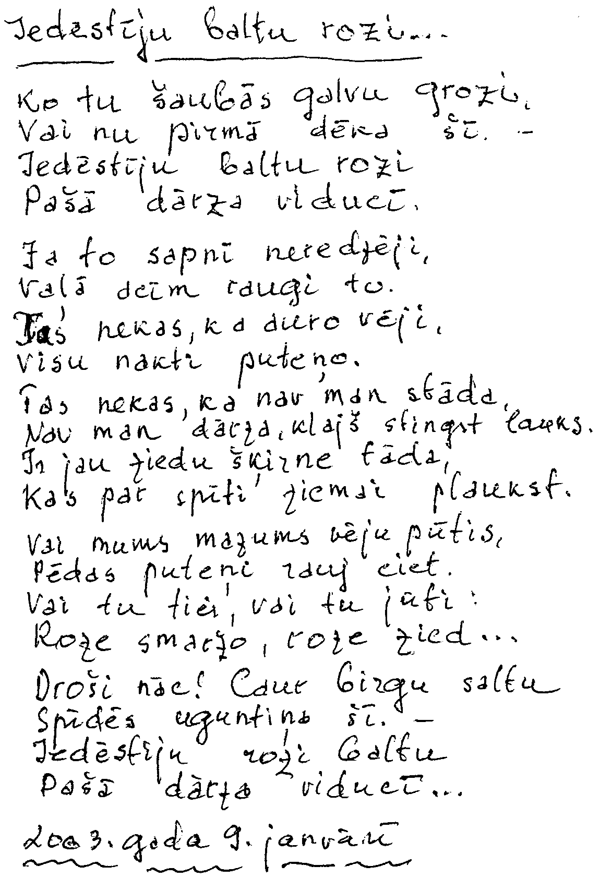 Iedēstīju baltu rozi...
Ko tu šaubās galvu grozi,
Vai nu pirmā dēka šī. –
Iedēstīju baltu rozi
Pašā dārza viducī.
Ja to sapnī neredzēji,
Vaļā acīm raugi to.
Tas nekas, ka auro vēji,
Visu nakti puteņo.
Tas nekas, ka nav man stāda,
Nav man dārza, klajš stingst lauks.
Ir jau ziedu šķirne tāda,
Kas par spīti ziemai plaukst.
Vai mums mazums vēju pūtis,
Pēdas putenī rauj ciet.
Vai tu tici, vai tu jūti:
Roze smaržo, roze zied...
Droši nāc! Caur birgu saltu
Spīdēs uguntiņa šī. –
Iedēstīju rozi baltu
Pašā dārza viducī...
2003. gada 9. janvārī